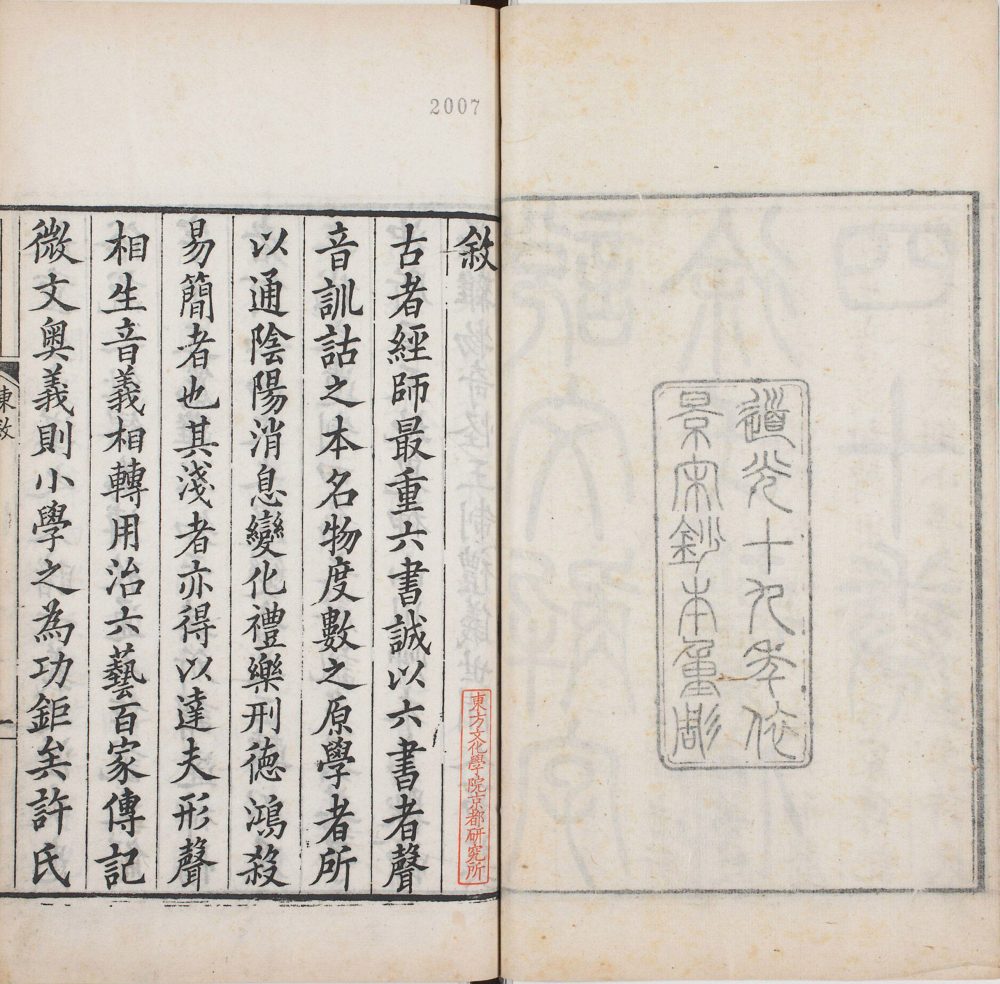 道光十九年依
景宋鈔本重彫
2007
敘
古者經師最重六書誠以六書者聲
音訓詁之本名物度數之原學者所
以通陰陽消息變化禮樂刑德鴻殺
易簡者也其淺者亦得以達夫形聲
相生音義相轉用治六藝百家傳記
微文奥義則小學之為功鉅矣許氏
東方文化學院京都研究所
敘
一